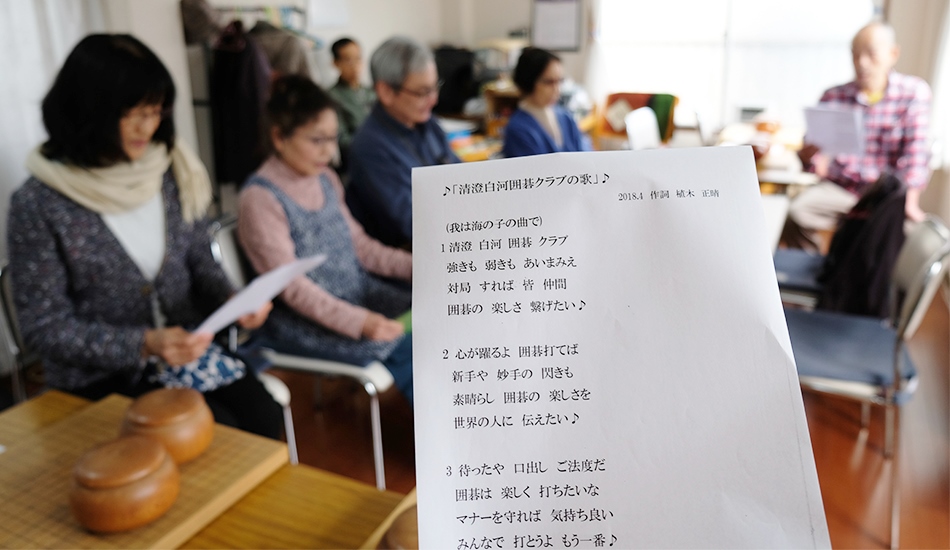 ♪「清澄白河囲碁クラブの歌」♪
2018.4 作詞 植木 正晴
(我は海の子の曲で)
1 清澄 白河 囲碁 クラブ
強きも 弱きも あいまみえ
対局 すれば 皆 仲間
囲碁の 楽しさ 繋げたい♪
2 心が躍るよ 囲碁打てば
新手や 妙手の 閃きも
素晴らし 囲碁の 楽しさを
世界の人に 伝えたい♪
3 待ったや 口出し ご法度だ
囲碁は 楽しく 打ちたいな
マナーを守れば 気持ち良い
みんなで 打とうよ もう一番♪